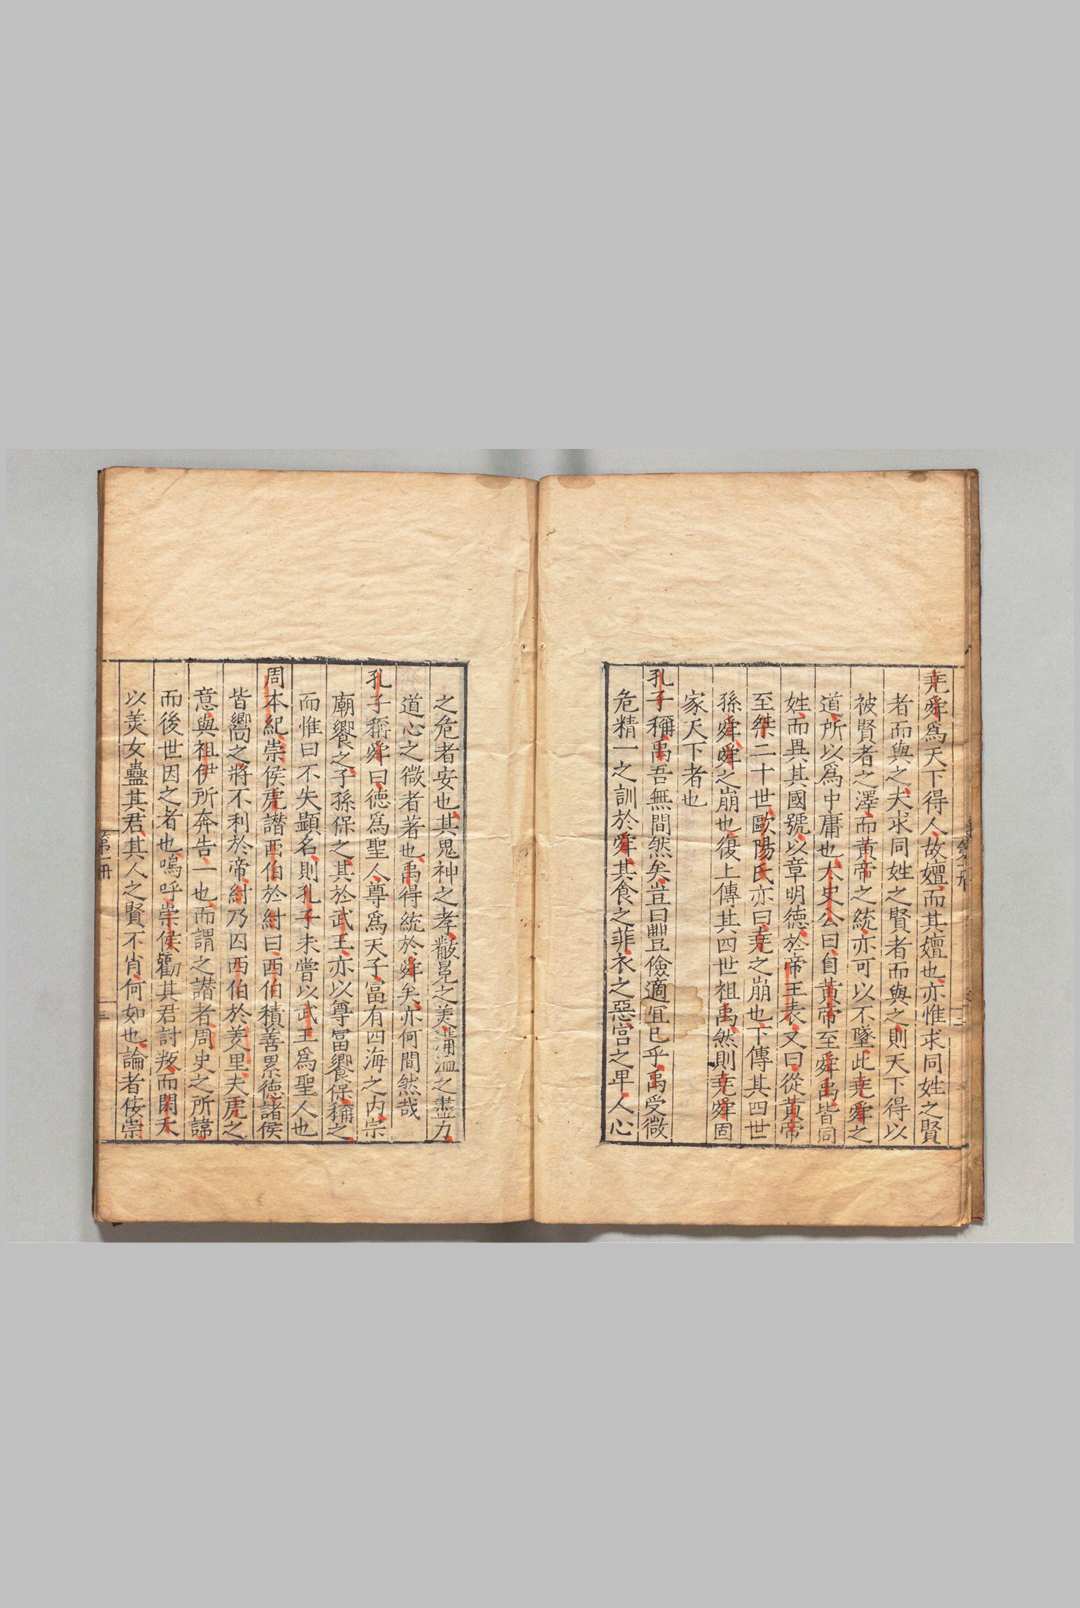 堯舜爲天下得人故嬗而其嬗也亦惟求同姓之賢
者而與之夫求同姓之賢者而與之則天下得以
被賢者之澤而黃帝之統亦可以不墜此堯舜之
道所以爲中庸也太史公曰自黃帝至舜禹皆同
姓而異其國號以章明德於帝王表又曰從黃帝
至桀二十世歐陽氏亦曰堯之崩也下傳其四世
孫舜舜之崩也復上傳其四世祖禹然則堯舜固
家天下者也
孔子稱禹吾無間然矣豈曰豐儉適宜已乎禹受微
危精一之訓於舜其食之菲衣之惡宮之卑人心
之危者安也其鬼神之孝黻冕之美溝洫之盡力
道心之微者著也禹得統於舜矣亦何間然哉
孔子稱舜曰德爲聖人尊爲天子富有四海之内宗
廟饗之子孫保之其於武王亦以尊富饗保稱之
而惟曰不失顯名則孔子未嘗以武王爲聖人也
周本紀崇侯虎譖西伯於紂曰西伯積善累德諸侯
皆嚮之將不利於帝紂乃囚西伯於羑里夫虎之
意與祖伊所奔告一也而謂之譖者周史之所諱
而後世因之者也嗚呼崇侯勸其君討叛而閎夭
以美女蠱其君其人之賢不肖何如也論者侫崇
第一册